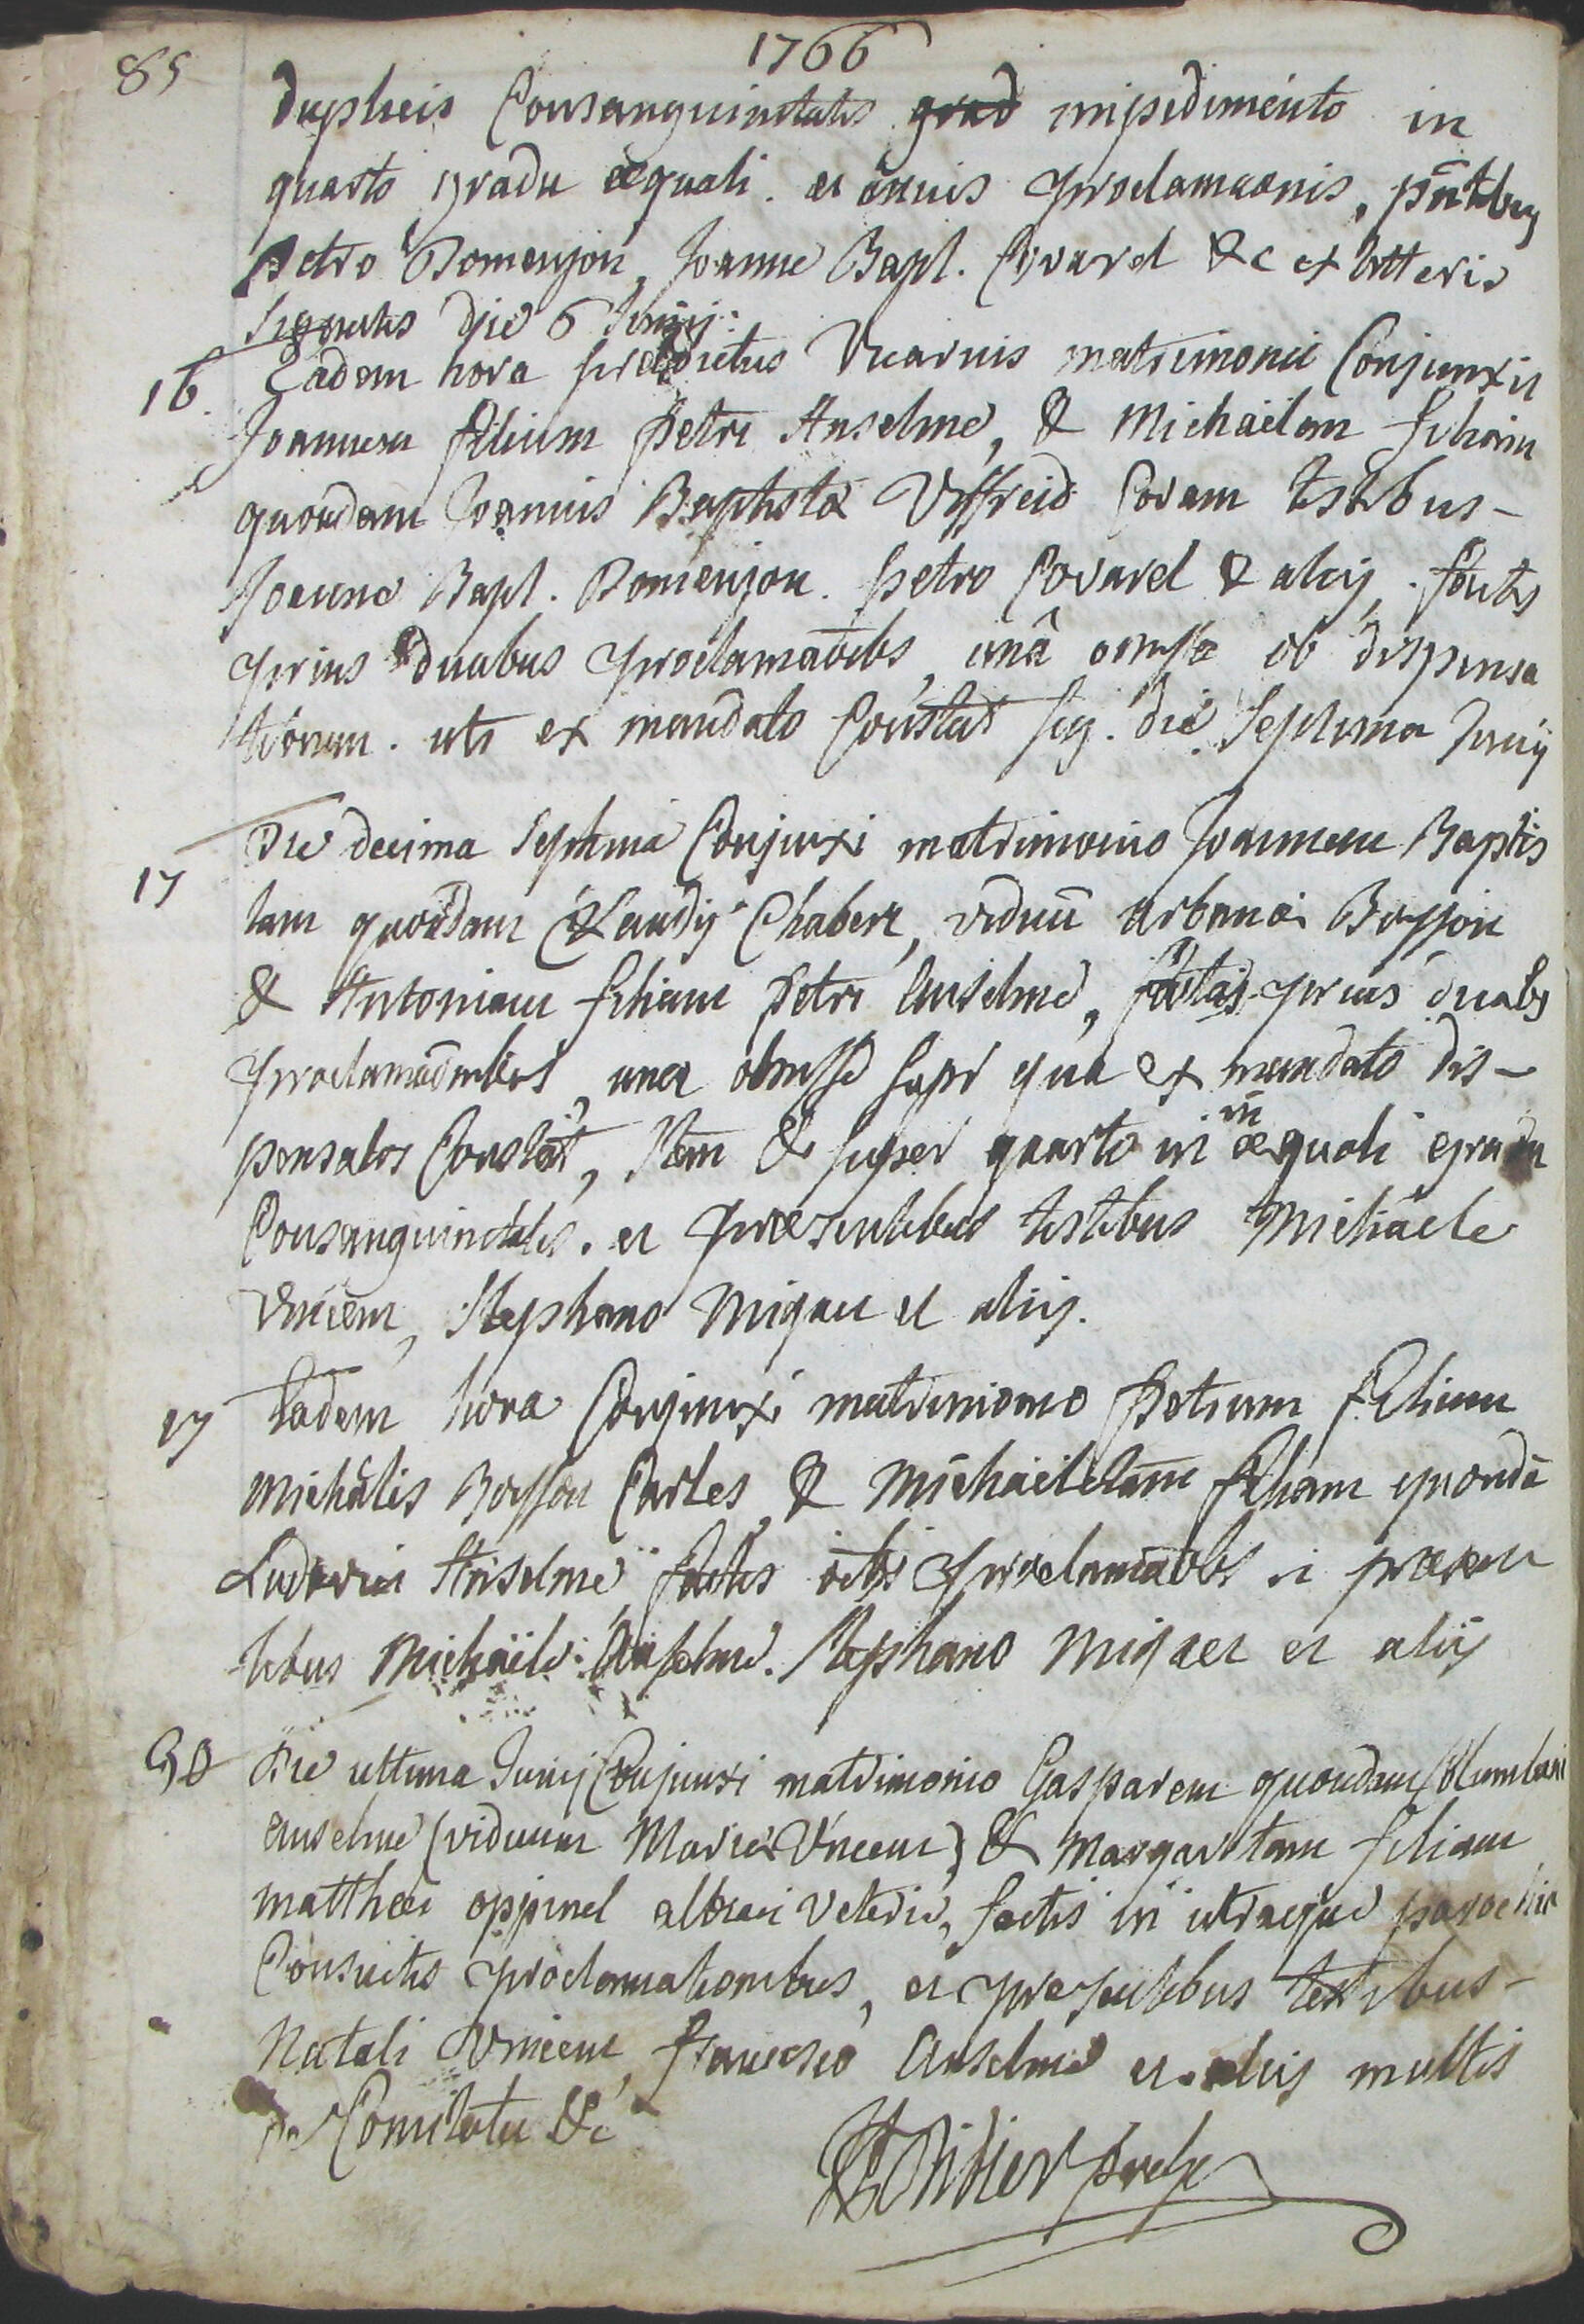 1766
85
duplicis Consanguinitatis grad impedimento in
quarto gradu æquali. et omnis proclamaonis, pntibus
Petro Domenjon, Joanne Bapt. Covarel &c ex litteris
signatis die 6 Junij.
16. Eadem hora predictus Vicarius matrimonii Conjunxit
Joannem filium Petri Anselme, & Michaëlam filiam
quondam Joannis Baptistæ Viffreid Coram testibus -
Joanne Bapt. Domenjon. petro Covarel & alijs, factis
prius duabus proclamaõbs, unâ omissa ob dispensa
tionem. uti ex mandato Constat sig. die septima Junij
17 Die decima septima Conjunxi matrimonio Joannem Baptis
tam quondam Claudij Chabert, viduũ urbanæ Bosson
& Antoniam filiam petri Anselme, factis prius duabs
proclamaõnibus, una obmissa supr qua ex mandato dis-
pensatos Constat, Item & super quarto in in æquali gradu
Consanguinitatis. et præsentibus testibus Michaele
Vincem, Stephano Miqau et alijs.
17 Eadem hora Conjunxi matrimonio Petrum filium
Michãlis Bosson Carles, & Michaëlelam filiam quondã
Ludovici Anselme factis prclamaõbs et præsen
tibus Michaële Anselme. Stephano Miqaet et alijs
30 Die ultima Junij Conjunxi matrimonio Gasparem quondam Columbani
Anselme (viduum Mariæ Vincem) & Margaritam filiam
matthæi oppinel albiaci veteris, factis in utraque parochia
Consuetis proclamationibus, et præsentibus testibus -
Natali Vincem, francisco Anselme et alijs multis
de Comitatu &c
Didier